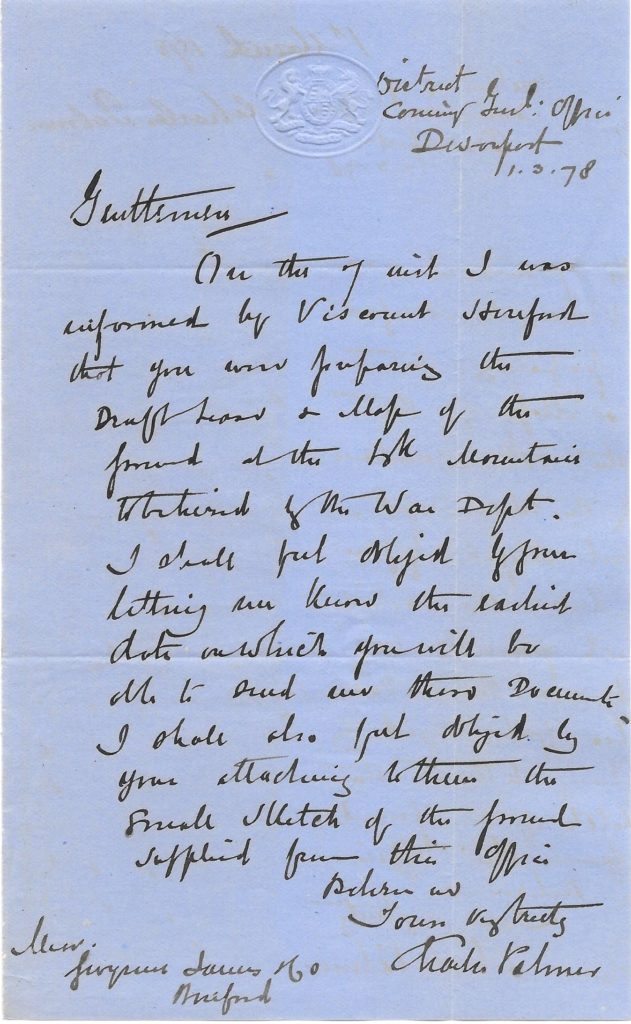 District
Commg Offici
Devonport
1.3.78
Gentlemen
On the inst I was
informed by Viscount Hereford
that you were preparing the
Draft Lease & Map of the
ground at the Mountain
to be hired by the War Dept.
I shall feel obliged by your
letting me know the earliest
date on which you will be
able to send me these Documents
I shall also feel obliged by
your attaching to them the
small sketch of the ground
supplied from this Office
Believe me
Yours very truly
Charles Palmer
Messrs.
Gwynne James & Co
Hereford